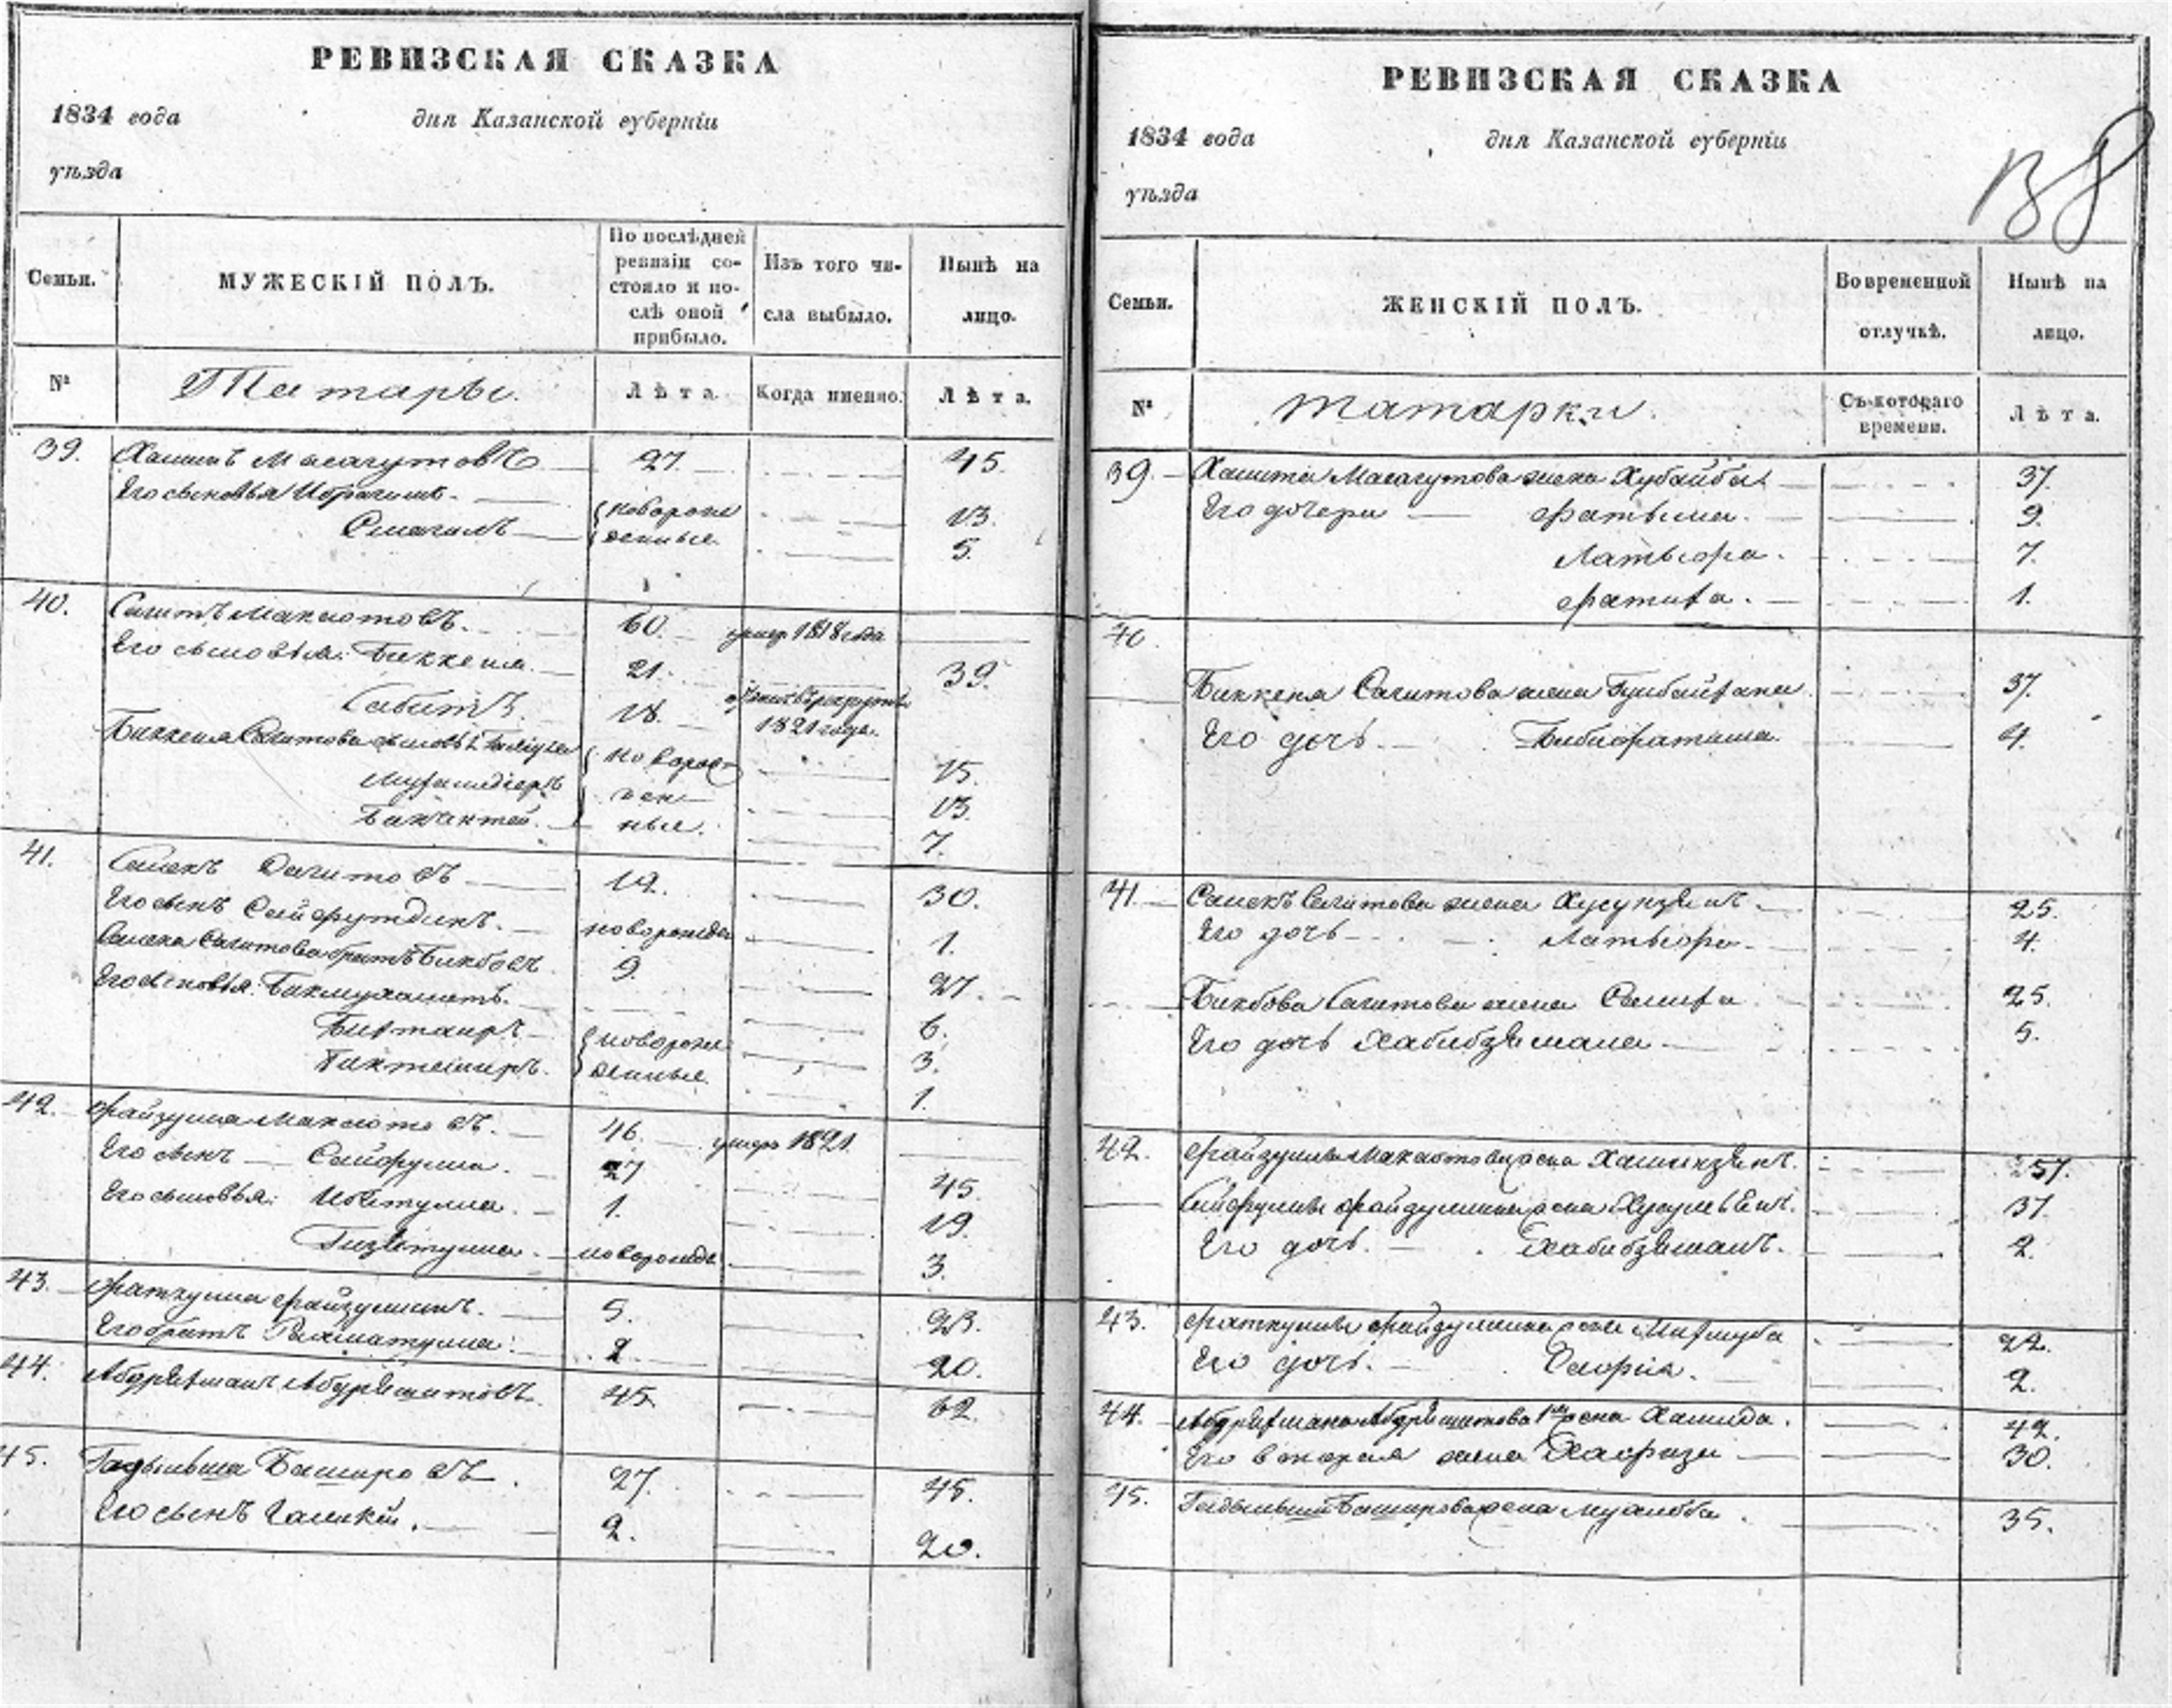 РЕВИЗСКАЯ СКАЗКА
1834 года дня Казанской губерніи
уѣзда
Семьи. МУЖЕСКІЙ ПОЛЪ. По послѣдней ревизіи состояло и послѣ оной прибыло. Изъ того числа выбыло. Нынѣ на лицо.
№ Татары. Лѣта. Когда именно. Лѣта.
39. Хамитъ Масагутовъ 27. 45.
Его сыновья Ибрагимъ новорож 13.
Смагилъ денные. 5.
40. Сагитъ Максютовъ. 60. умер 1818 года
Его сыновья: Биккеня. 21. 39.
Сабитъ. 18. 1821 года.
Биккеня Сагитова сыновья новорож 15.
ден 13.
Бикчентей. ные. 7.
41. Сагитовъ 12. 30.
Его сынъ Сейфутдинъ. новорожден 1.
Сагитова братъ Бикбовъ 9. 27.
Его сыновья: Бикмухаметъ. 6.
Бигтаиръ новорож 3.
Биктемиръ. денные. 1.
42. Файзулла Максютовъ. 46. умеръ 1821
Его сынъ Сейфулла. 27 45.
Его сыновья: 1. 19.
Гизетулла. новорожде 3.
43. Фаткулла Файзуллинъ. 5. 23.
Его братъ Рахматулла: 2. 20.
44. Абдряхманъ Абдряшитовъ. 45. 62.
45. Башировъ. 27. 45.
Его сынъ 2. 20.
РЕВИЗСКАЯ СКАЗКА
1834 года дня Казанской губерніи
уѣзда
Семьи. ЖЕНСКІЙ ПОЛЪ. Во временной отлучкѣ. Нынѣ на лицо.
№ татарки. Съ котораго времени. Лѣта.
39. Хамита Масагутова жена Хубайба 37.
Его дочери Фатыма. 9.
Латыфа. 7.
1.
40.
Биккеня Сагитова жена 37.
Его дочь. Бибифатима. 4.
41. Сагитова жена 25.
Его дочь Латыфа. 4.
Бикбова Сагитова жена 25.
Его дочь Хабибзямала 5.
42. Файзуллы Максютова жена 57.
Сейфуллы Файзуллина жена 37.
Его дочь. Хабибзямалъ. 2.
43. Фаткуллы Файзуллина жена 22.
Его дочь. 2.
44. Абдряхмана Абдряшитова 1я жена Хамида. 42.
Его вторая жена Хафиза 30.
45. Баширова жена 35.